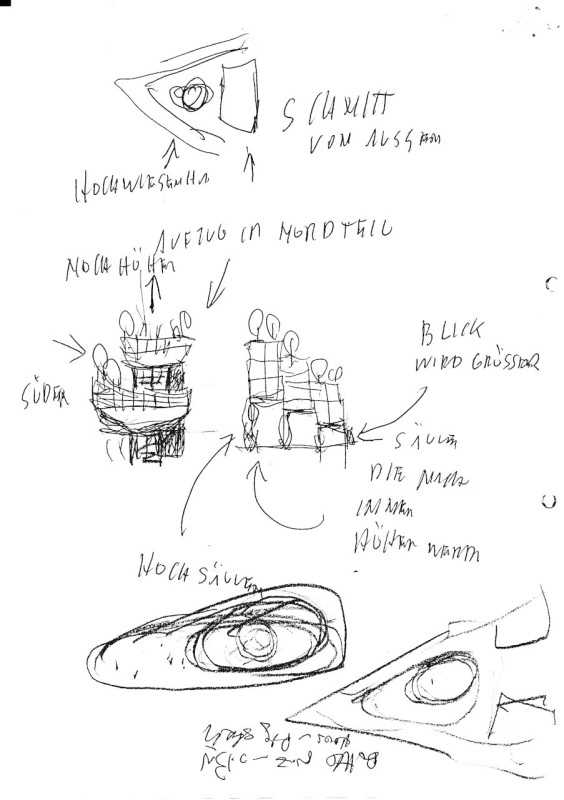 SCHNITT
VON AUSSEN
HOCHWIESENH
AUFZUG IM NORDTEIL
NOCH HÖHER
BLICK
WIRD GRÖSSER
SÜDEN
SÄULEN
DIE NACH
INNEN
HÖHER WERDEN
HOCHSÄULEN